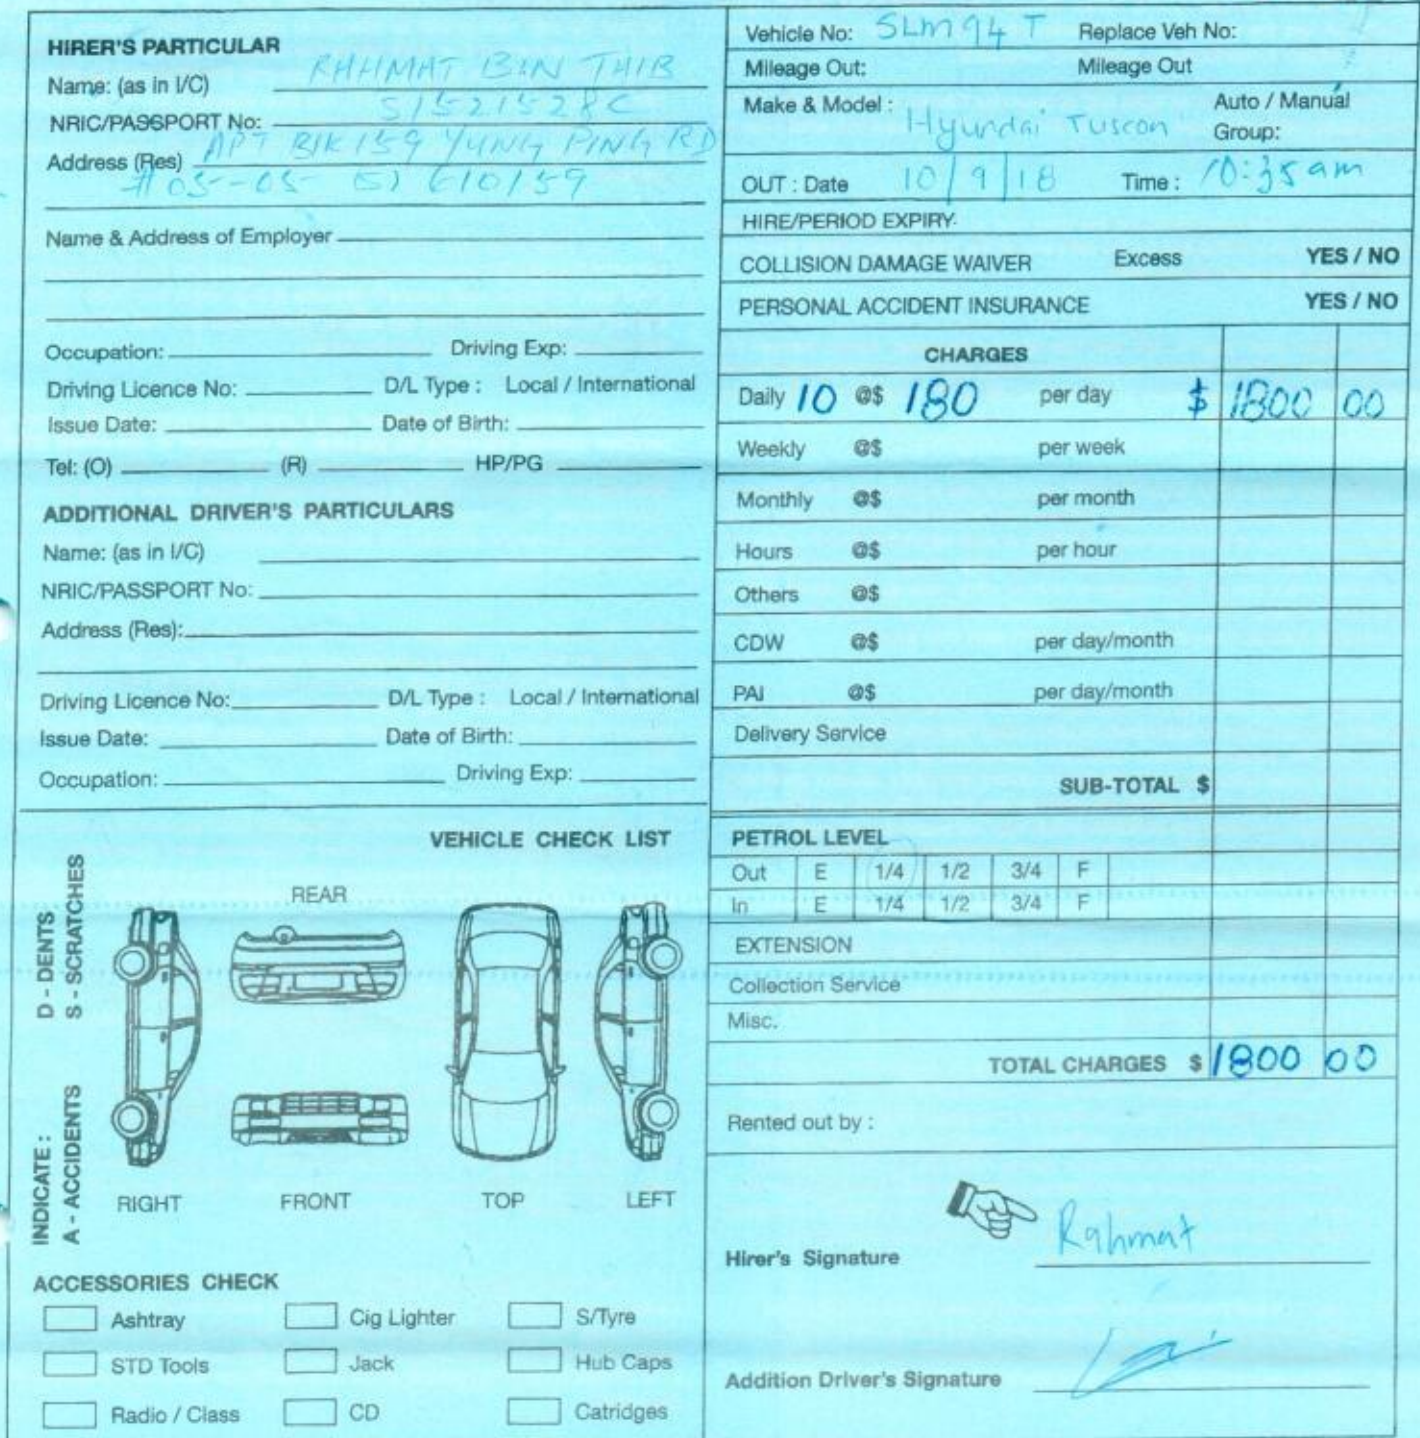 HIRER'S PARTICULAR
Name: (as in I/C) RAHMAT BIN THIB
NRIC/PASSPORT No: S1521528C
Address (Res) APT BLK 159 YUNG PING RD
#05-05 (S) 610159
Name & Address of Employer
Occupation: Driving Exp:
Driving Licence No: D/L Type : Local / International
Issue Date: Date of Birth:
Tel: (O) (R) HP/PG
ADDITIONAL DRIVER'S PARTICULARS
Name: (as in I/C)
NRIC/PASSPORT No:
Address (Res):
Driving Licence No: D/L Type : Local / International
Issue Date: Date of Birth:
Occupation: Driving Exp:
VEHICLE CHECK LIST
INDICATE :
D - DENTS
S - SCRATCHES
A - ACCIDENTS
REAR
RIGHT FRONT TOP LEFT
ACCESSORIES CHECK
Ashtray Cig Lighter S/Tyre
STD Tools Jack Hub Caps
Radio / Class CD Catridges
Vehicle No: SLM94T Replace Veh No:
Mileage Out: Mileage Out
Make & Model : Hyundai Tuscon Auto / Manual
Group:
OUT : Date 10/9/18 Time : 10:35am
HIRE/PERIOD EXPIRY.
COLLISION DAMAGE WAIVER Excess YES / NO
PERSONAL ACCIDENT INSURANCE YES / NO
CHARGES
Daily 10 @$ 180 per day $ 1800 00
Weekly @$ per week
Monthly @$ per month
Hours @$ per hour
Others @$
CDW @$ per day/month
PAI @$ per day/month
Delivery Service
SUB-TOTAL $
PETROL LEVEL
Out E 1/4 1/2 3/4 F
In E 1/4 1/2 3/4 F
EXTENSION
Collection Service
Misc.
TOTAL CHARGES $ 1800 00
Rented out by :
Hirer's Signature Rahmat
Addition Driver's Signature